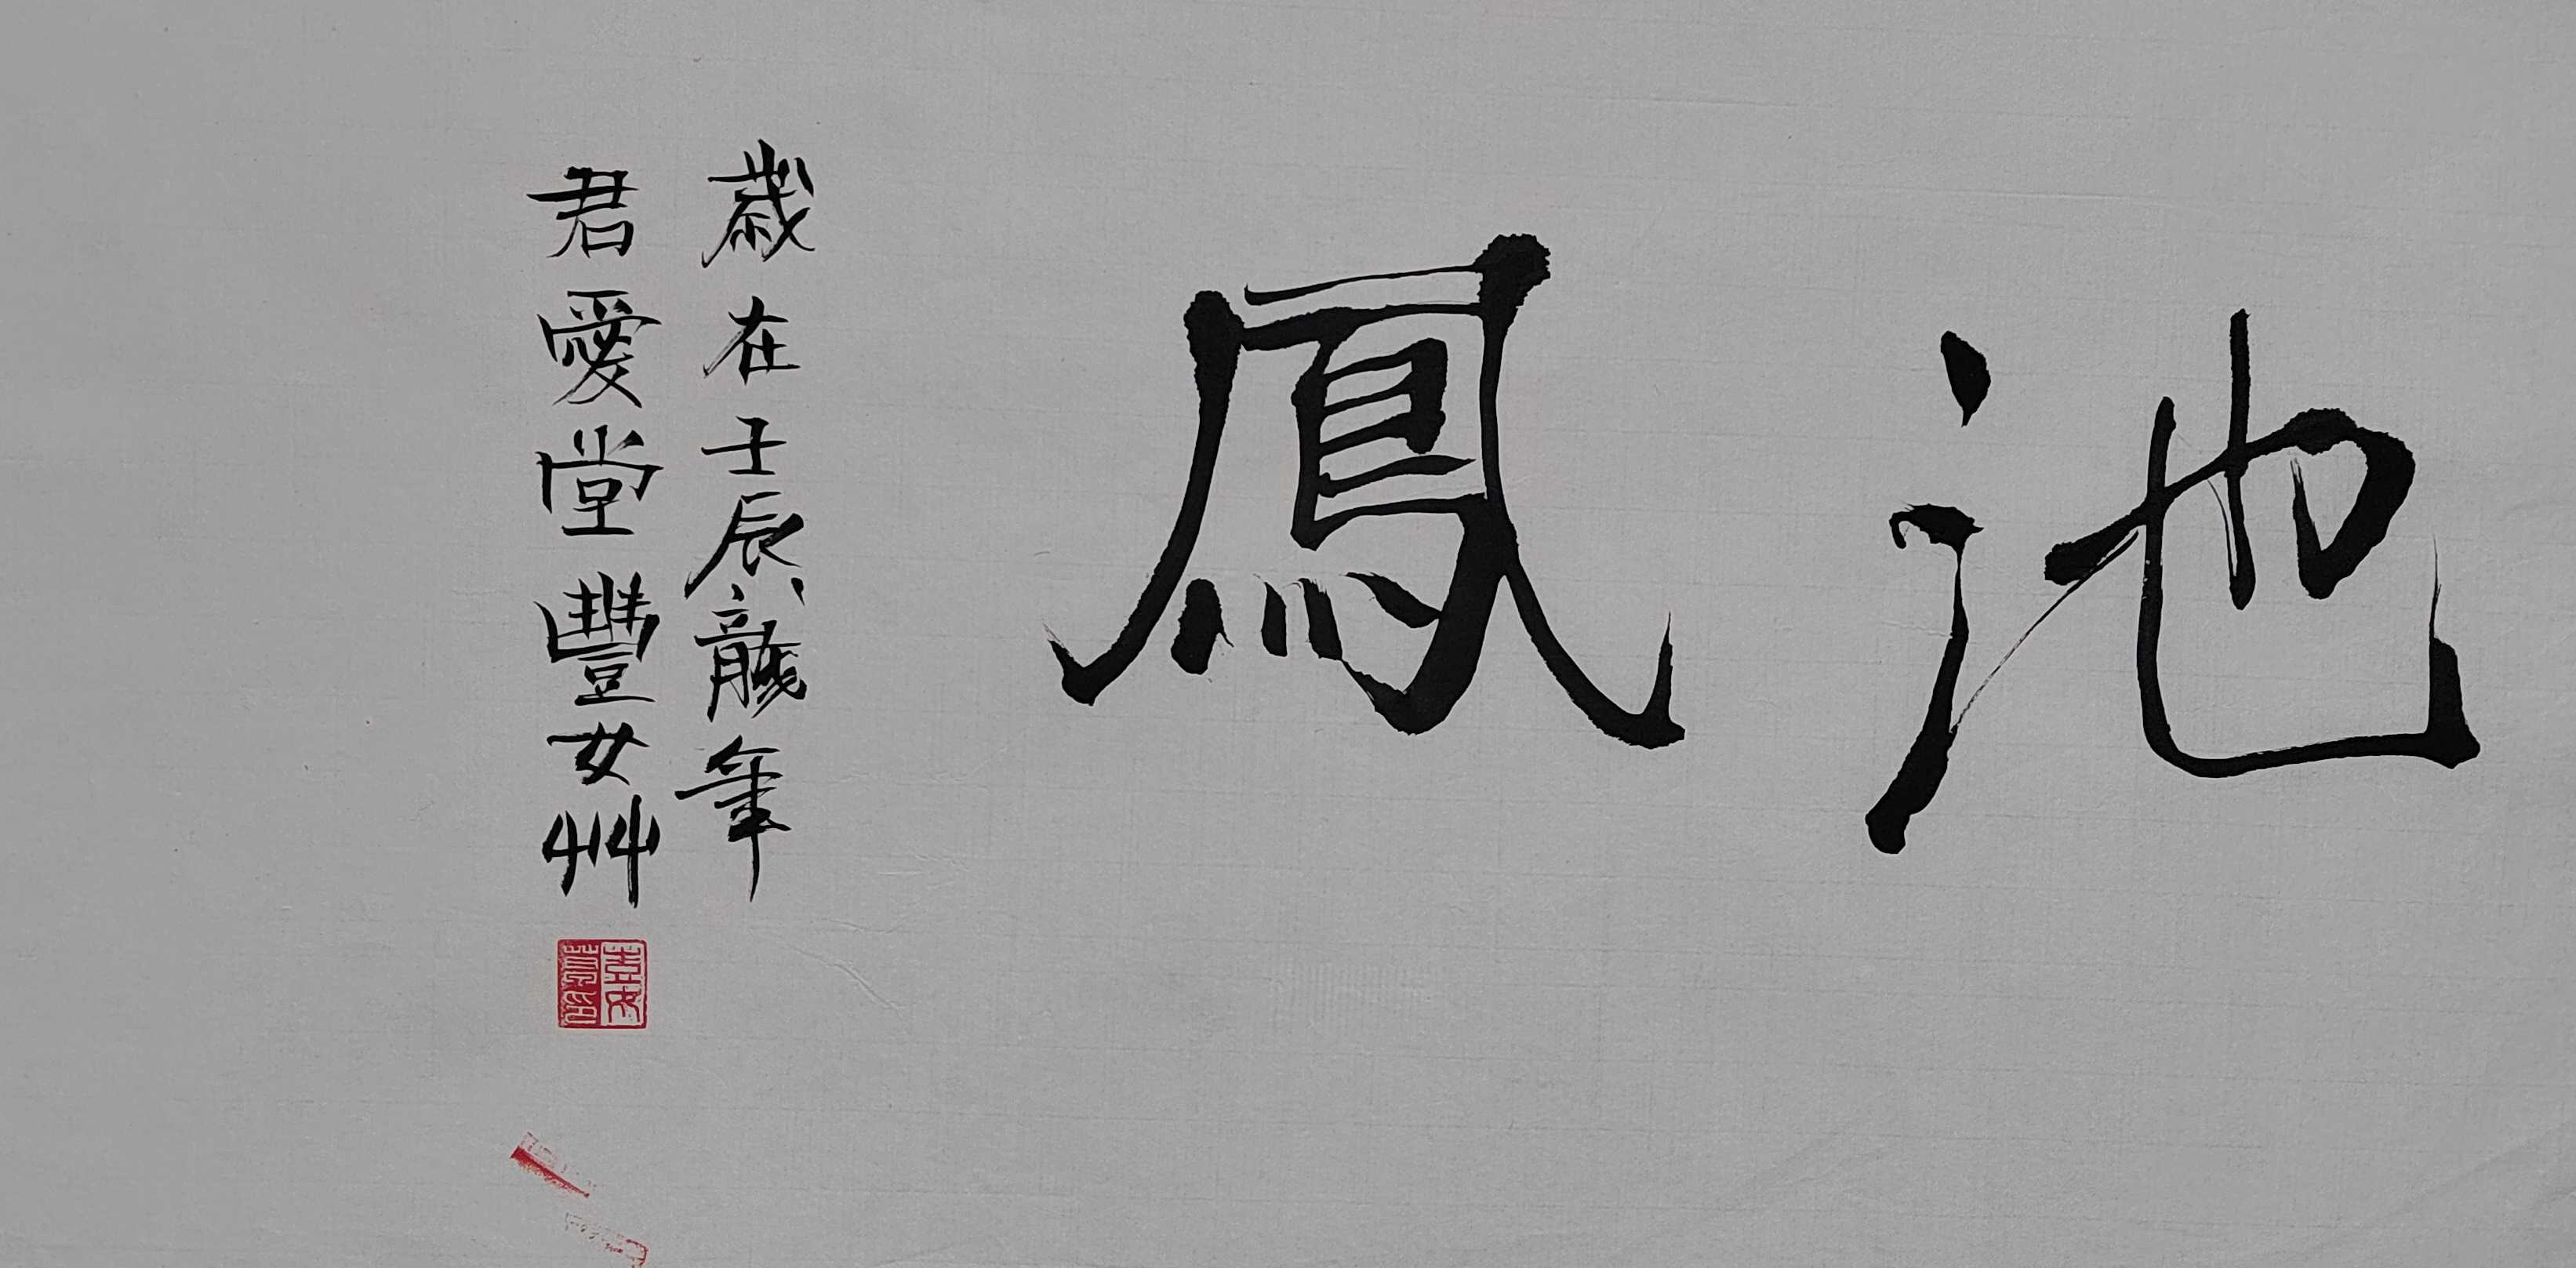 池鳳
歲在壬辰龍年
君愛堂豐女艸